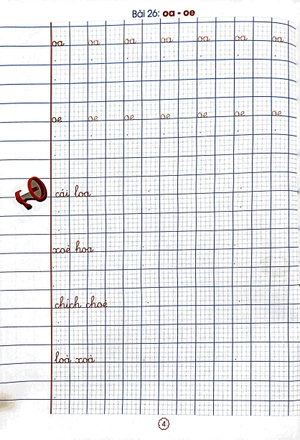 Bài 26: oa - oe
oa oa oa oa oa oa oa
oe oe oe oe oe oe oe
cái loa
xoè hoa
chích choè
loà xoà
4